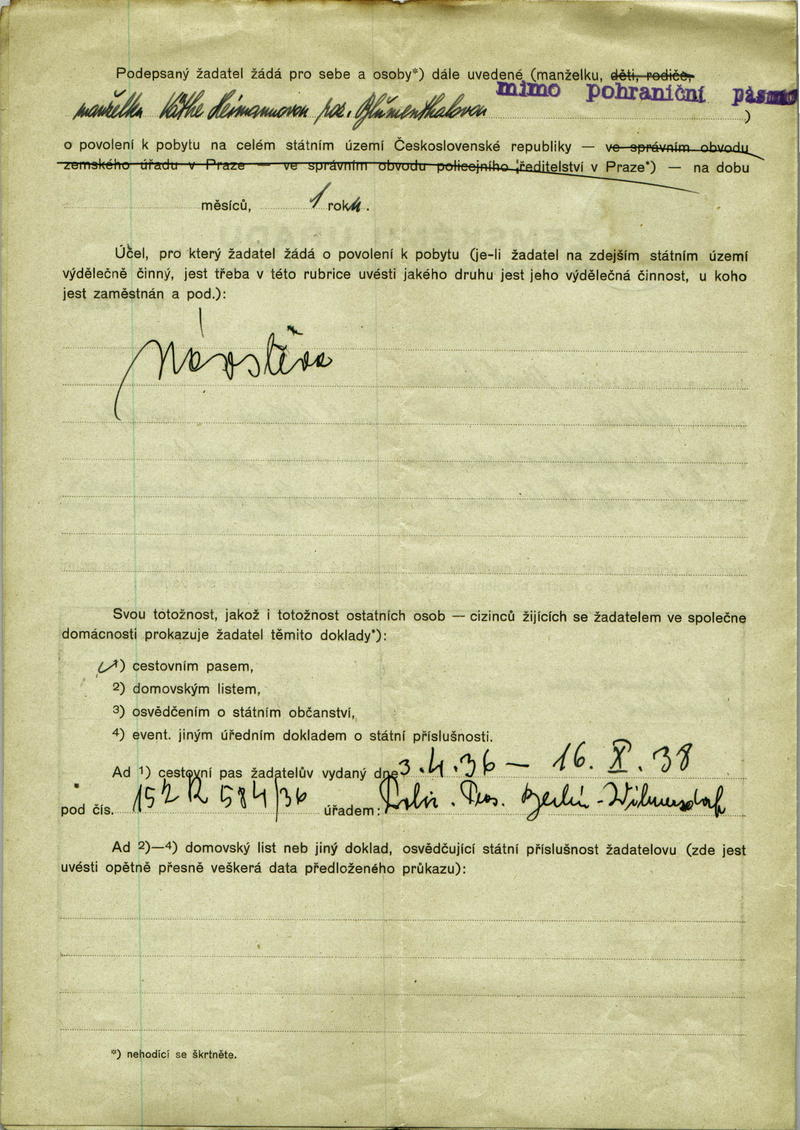 Podepsaný žadatel žádá pro sebe a osoby*) dále uvedené (manželku, děti, rodiče,
mimo pohraniční pásmo
manželka Käthe Heimannovou roz. Blumenthalovou )
o povolení k pobytu na celém státním území Československé republiky — ve správním obvodu
zemského úřadu v Praze — ve správním obvodu policejního ředitelství v Praze*) — na dobu
měsíců, 1 roku.
Účel, pro který žadatel žádá o povolení k pobytu (je-li žadatel na zdejším státním území
výdělečně činný, jest třeba v této rubrice uvésti jakého druhu jest jeho výdělečná činnost, u koho
jest zaměstnán a pod.):
Návštěva
Svou totožnost, jakož i totožnost ostatních osob — cizinců žijících se žadatelem ve společne
domácnosti prokazuje žadatel těmito doklady*):
1) cestovním pasem,
2) domovským listem,
3) osvědčením o státním občanství,
4) event. jiným úředním dokladem o státní příslušnosti.
Ad 1) cestovní pas žadatelův vydaný dne 3.4.36 — 16. X. 38
pod čís. 152 R 584/36 úřadem: Berlin-Wilmersdorf
Ad 2)—4) domovský list neb jiný doklad, osvědčující státní příslušnost žadatelovu (zde jest
uvésti opětně přesně veškerá data předloženého průkazu):
*) nehodící se škrtněte.